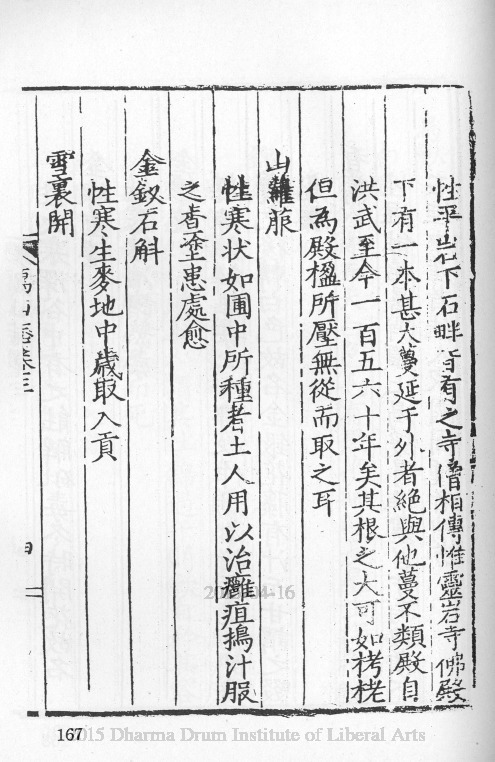 性平岩下石畔皆有之寺僧相傳惟靈岩寺佛殿
下有一本甚大蔓延于外者絶與他蔓不類殿自
洪武至今一百五六十年矣其根之大可如栲栳
但為殿楹所壓無從而取之耳
山蘿菔
性寒状如圃中所種者土人用以治癰疽搗汁服
之查塗患處愈
金釵石斛
性寒生麥地中歲取入貢
雪裏開
167
2015 Dharma Drum Institute of Liberal Arts